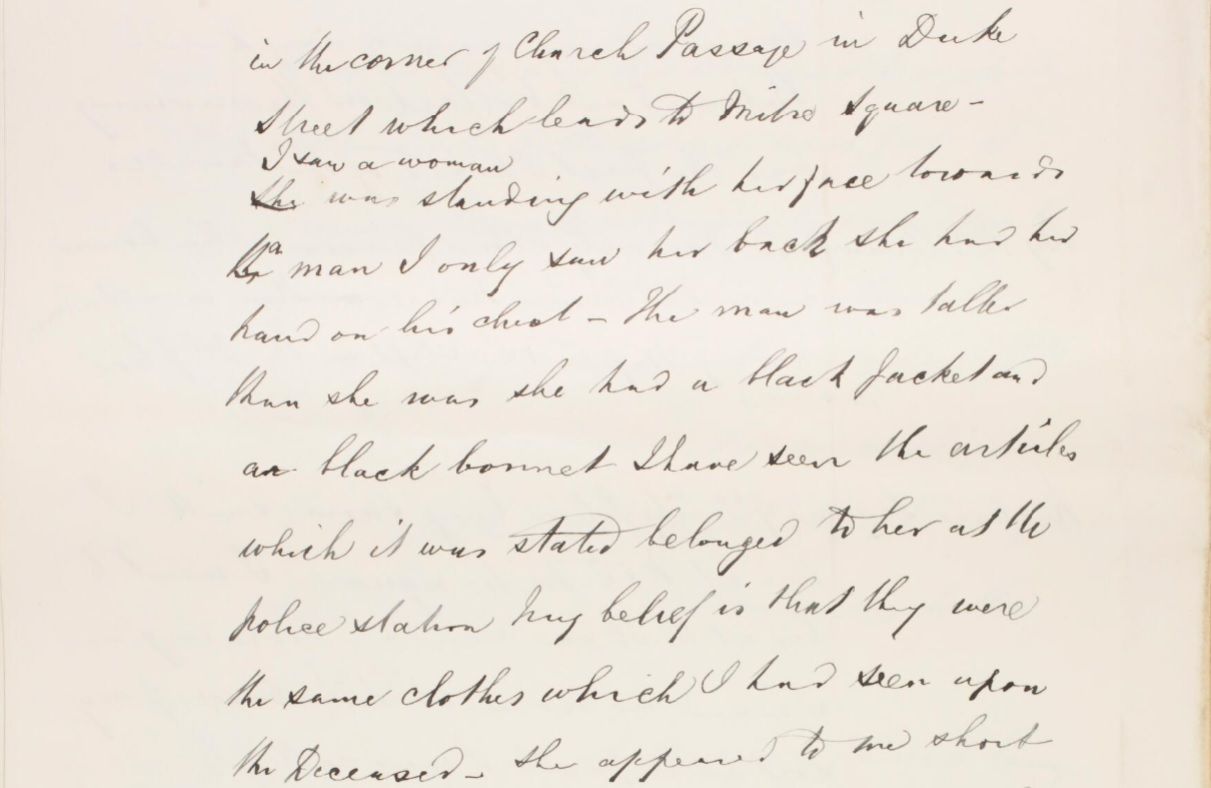 in the corner of Church Passage in Duke
Street which leads to Mitre Square -
I saw a woman
She was standing with her face towards
a man I only saw her back she had her
hand on his chest - The man was taller
than she was she had a black Jacket and
a black bonnet I have seen the articles
which it was stated belonged to her at the
police station My belief is that they were
the same clothes which I had seen upon
the Deceased - She appeared to me short